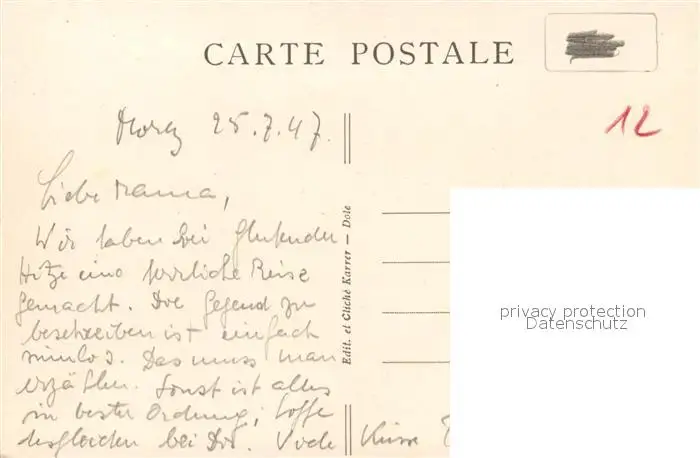 CARTE POSTALE
12
Morez 25.7.47.
Liebe Mama,
Wir haben bei glühender
Hitze eine herrliche Reise
gemacht. Die Gegend zu
beschreiben ist einfach
sinnlos. Das muss man
erzählen. Sonst ist alles
in bester Ordnung; hoffe
desgleichen bei Dir. Viele
Küsse
Edit. et Cliché Karrer — Dole
privacy protection
Datenschutz